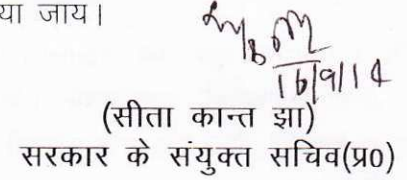 या जाय।
16/9/14
(सीता कान्त झा)
सरकार के संयुक्त सचिव(प्र0)